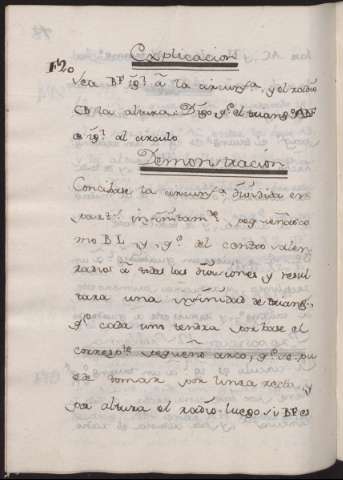 Explicacion
F 20
Sea BF ig.l â la circunf.a, y el radio
CB la altura: Digo q.e el triang.o CBF
es ig.l al circulo
Demonstracion
Concibase la circunf.a dividida en
part.s infinitam.te pequeñas co
mo BL, y q.e del centro salen
radios â todas las divisiones y resul
tara una infinidad de triang.s
q.e cada uno tendra por base el
correspte. pequeño arco, q.e se pu
ede tomar por linea recta, y
por altura el radio. luego si BF es